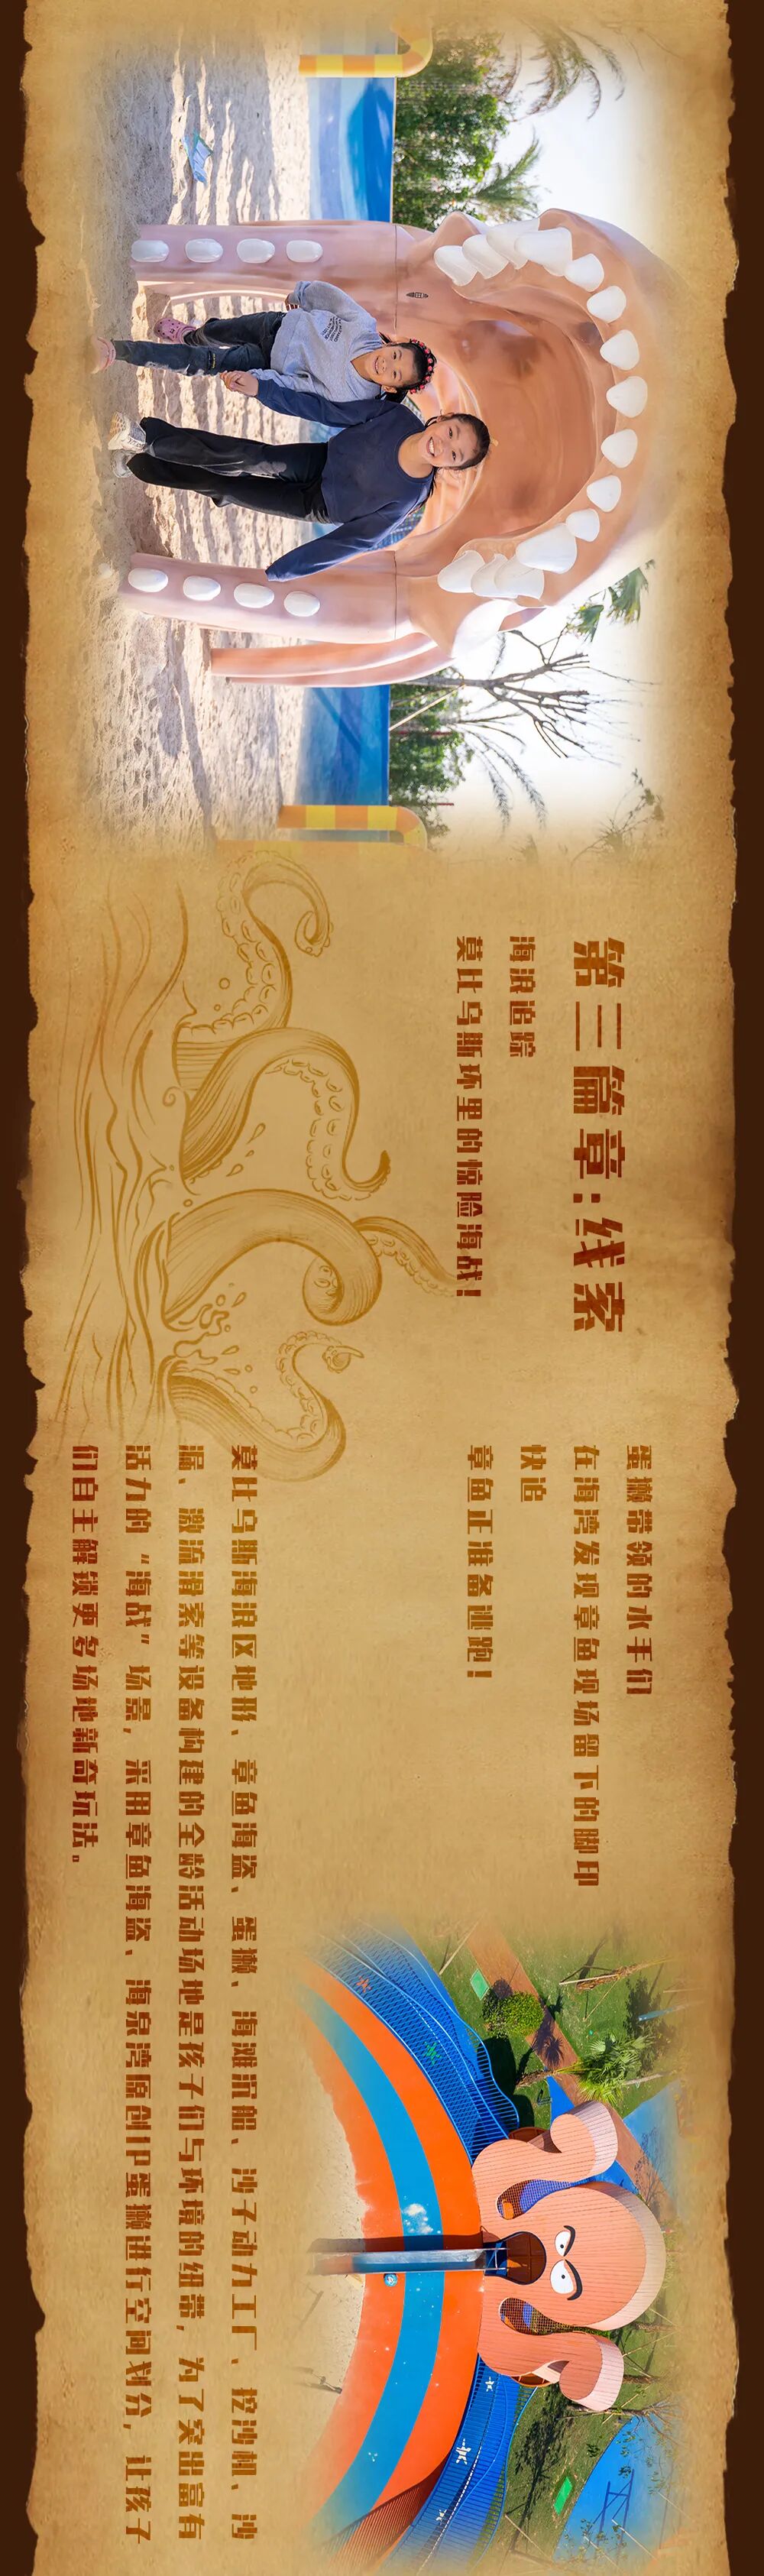 第三篇章：线索
海浪追踪
莫比乌斯环里的惊险海战！
蛋獭带领的水手们
在海湾发现章鱼现场留下的脚印
快追
章鱼正准备逃跑！
莫比乌斯海浪区地形、章鱼海盗、蛋獭、海滩沉船、沙子动力工厂、挖沙机、沙
漏、激流滑索等设备构建的全龄活动场地是孩子们与环境的纽带，为了突出富有
活力的“海战”场景，采用章鱼海盗、海泉湾原创IP蛋獭进行空间划分，让孩子
们自主解锁更多场地新奇玩法。